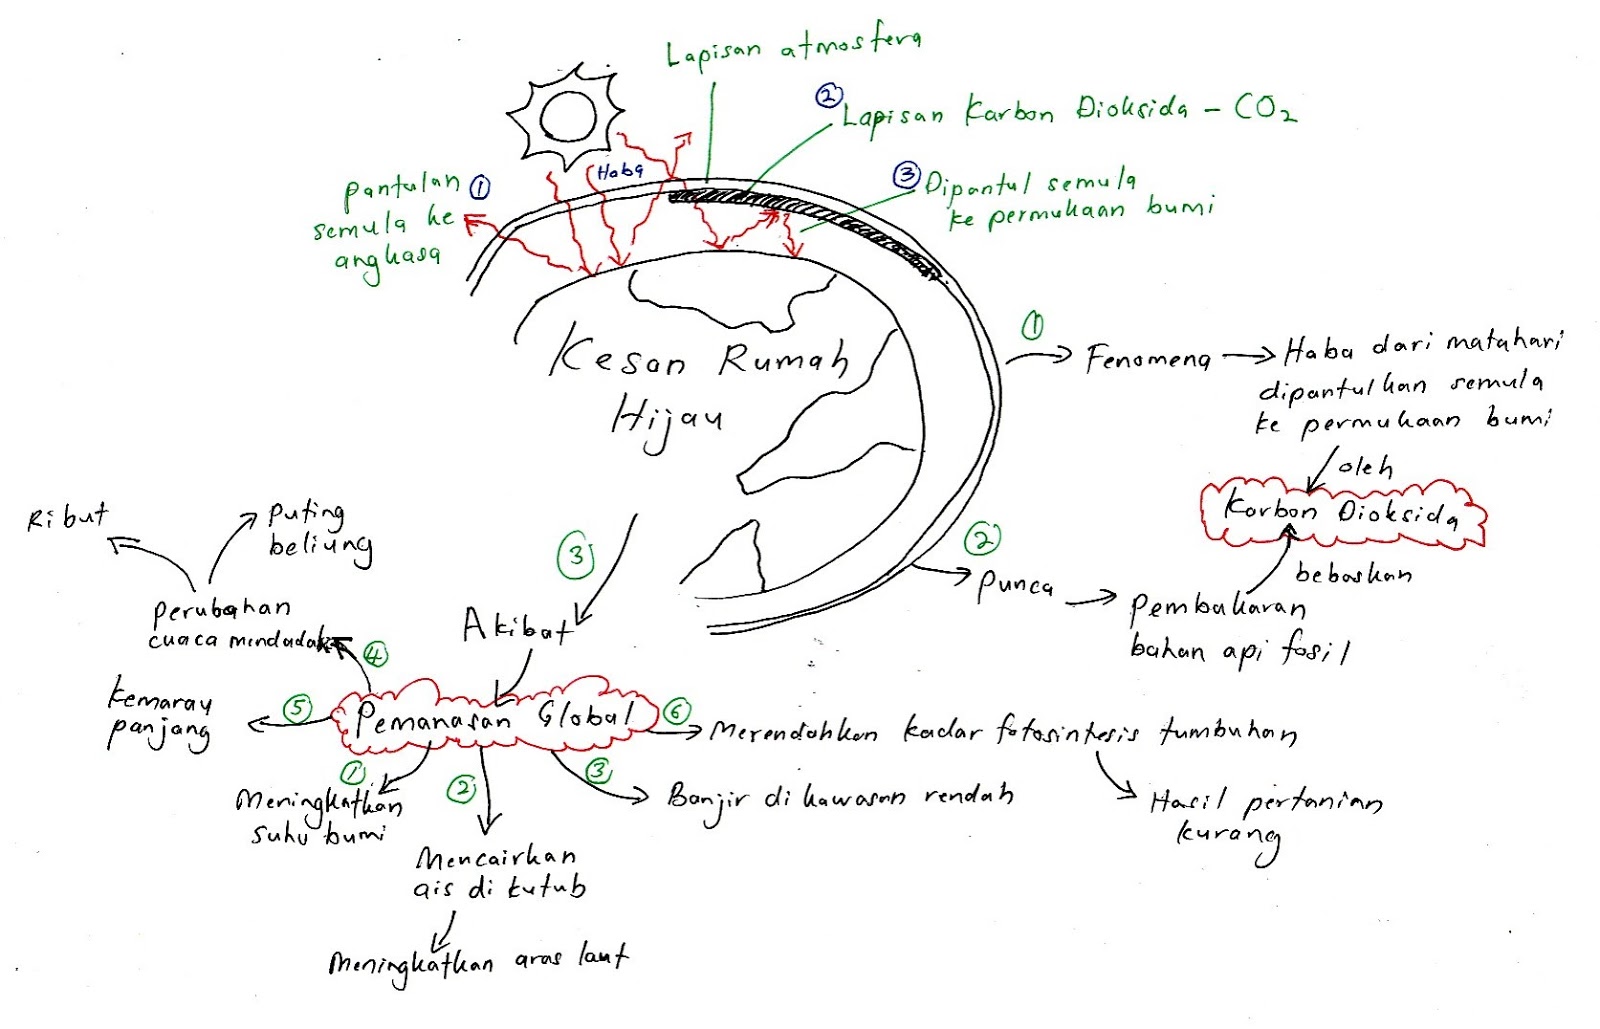 Lapisan atmosfera
②
Lapisan Karbon Dioksida – CO₂
Haba
pantulan ①
semula ke
angkasa
③ Dipantul semula
ke permukaan bumi
Kesan Rumah
Hijau
①
Fenomena → Haba dari matahari
dipantulkan semula
ke permukaan bumi
oleh
Karbon Dioksida
bebaskan
②
Punca
Pembakaran
bahan api fosil
③
Akibat
Pemanasan Global
Ribut
Puting
beliung
Perubahan
cuaca mendadak
④
Kemaray
panjang
⑤
①
Meningkatkan
suhu bumi
②
Mencairkan
ais di kutub
Meningkatkan aras laut
③
Banjir di kawasan rendah
⑥
Merendahkan kadar fotosintesis tumbuhan
Hasil pertanian
kurang